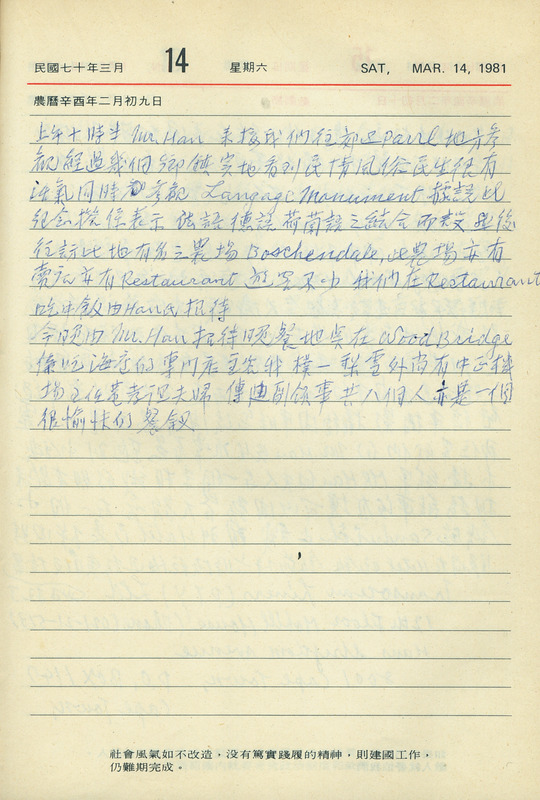 民國七十年三月 14 星期六 SAT, MAR. 14, 1981
農曆辛酉年二月初九日
上午十時半 Mr. Han 來接我們往郊區 Parrl 地方參
觀經過幾個鄉鎮實地看到民情風俗民生很有
活氣同時參觀 Langage Monument 據說此
紀念撐係表示 法語德語荷蘭語之結合 而後
往訪此地有名之農場 Boschendale, 此農場亦有
賣亦有 Restaurant 遊客不少 我們在 Restaurant
吃中飯由 Han 氏招待
今晚由 Mr. Han 招待晚餐地點在 Wood Bridge
係吃海產的專門店主客我 外尚有中正機
場主任夫婦 傳迪副領事共八個人亦是一個
很愉快的餐叙
社會風氣如不改造，沒有篤實踐履的精神，則建國工作，
仍難期完成。